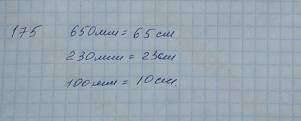 175 650мм = 65 см
230мм = 23см
100мм = 10см.